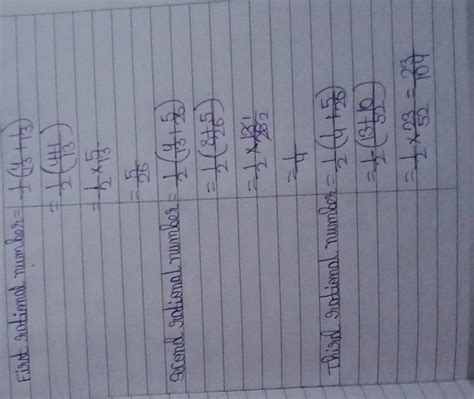 First rational number = 1/2 (4/13 + 1/13)
= 1/2 (4+1/13)
= 1/2 × 5/13
= 5/26
Second rational number = 1/2 (4/13 + 5/26)
= 1/2 (8+5/26)
= 1/2 × 13/26
= 1/4
Third rational number = 1/2 (1/4 + 5/26)
= 1/2 (13+10/52)
= 1/2 × 23/52 = 23/104